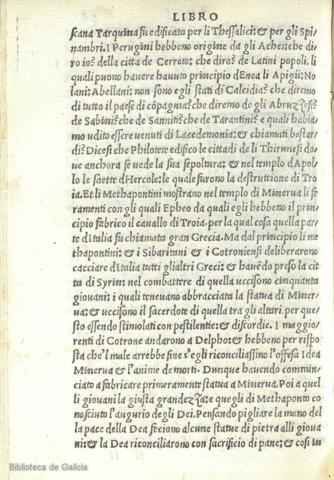 LIBRO
scana Tarquina fu edificata per li Thessalici: & per gli Spi-
nambri. I Perugini hebbeno origine da gli Achei: che di-
ro io? della citta de Cerreto: che diro? de Latini popoli. li
quali puono hauere hauuto principio d'Enea li Apigii: No
lani: Abellani: non sono egli stati di Calcidia? che diremo
di tutto il paese di cōpagnia? che diremo de gli Abruzzesi?
de Sabini? che de Sanniti? che de Tarantini? e quali habia-
mo udito essere uenuti di Lacedemonia: & chiamati bastar-
di? Dicesi che Philotete edifico le cittadi de li Thirinesi do-
ue anchora se uede la sua sepoltura: & nel templo d'Apol-
lo le saette d'Hercole: le quale furono la destruttione di Tro
ia. Et li Methapontini mostrano nel templo di Minerua li fe
ramenti con gli quali Epheo da quali egli hebbeno il prin-
cipio fabrico il cauallo di Troia. per la qual cosa quella par-
te d'Italia fu chiamata gran Grecia. Ma dal principio li me
thapontini: & i Sibaritani & i Cotroniensi deliberarono
cacciare d'Italia tutti gli altri Greci: & hauēdo preso la cit
ta di Syrim: nel combattere di quella uccisono cinquanta
giouani: i quali teneuano abbracciata la statua di Miner-
ua: & uccisono il sacerdote di quella tra gli altari. per que-
sto essendo stimolati con pestilentie: & discordie. I maggio
renti di Cotrone andarono a Delpho: & hebbeno per rispo
sta che'l male arrebbe fine s'egli riconciliassino l'offesa Idea
Minerua & l'anime de morti. Dunque hauendo commin-
ciato a fabricare primeramente statua a Minerua. Poi a qual
li giouani la giusta grandezza: & quegli di Methaponto co
nosciuto l'augurio de gli Dei. Pensando pigliare la mano del
la pace della Dea feciono alcune statue di pietra alli gioua
ni: & la Dea riconciliarono con sacrificio di pane: & cosi in
Biblioteca de Galicia